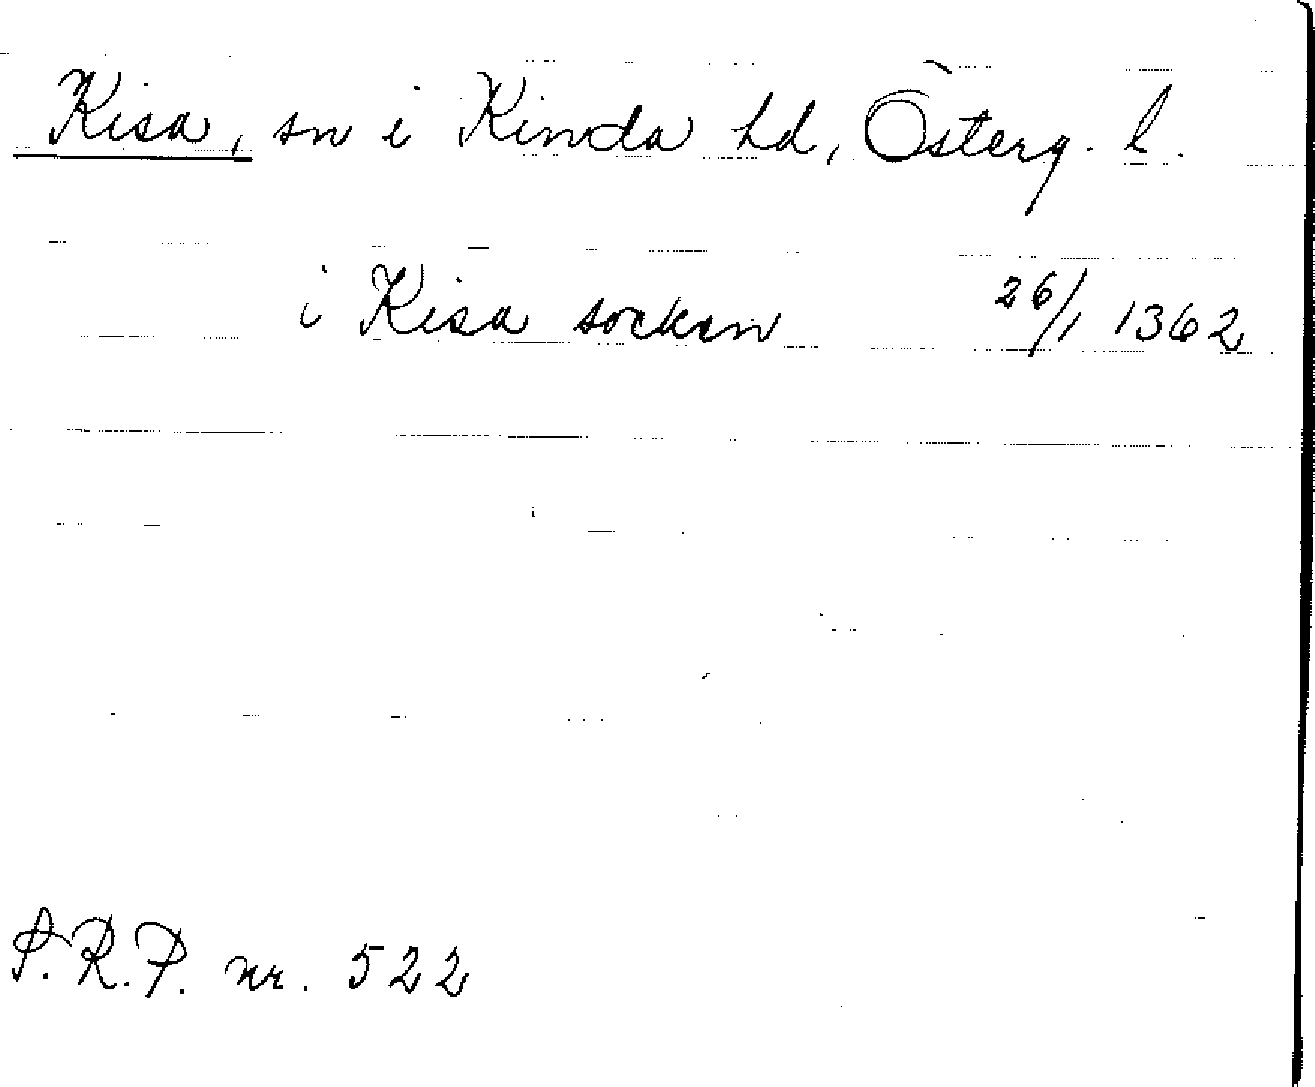 Kisa, sn i Kinda hd, Österg. l.
i Kisa sockan 26/1 1362
S.R.P. nr. 522